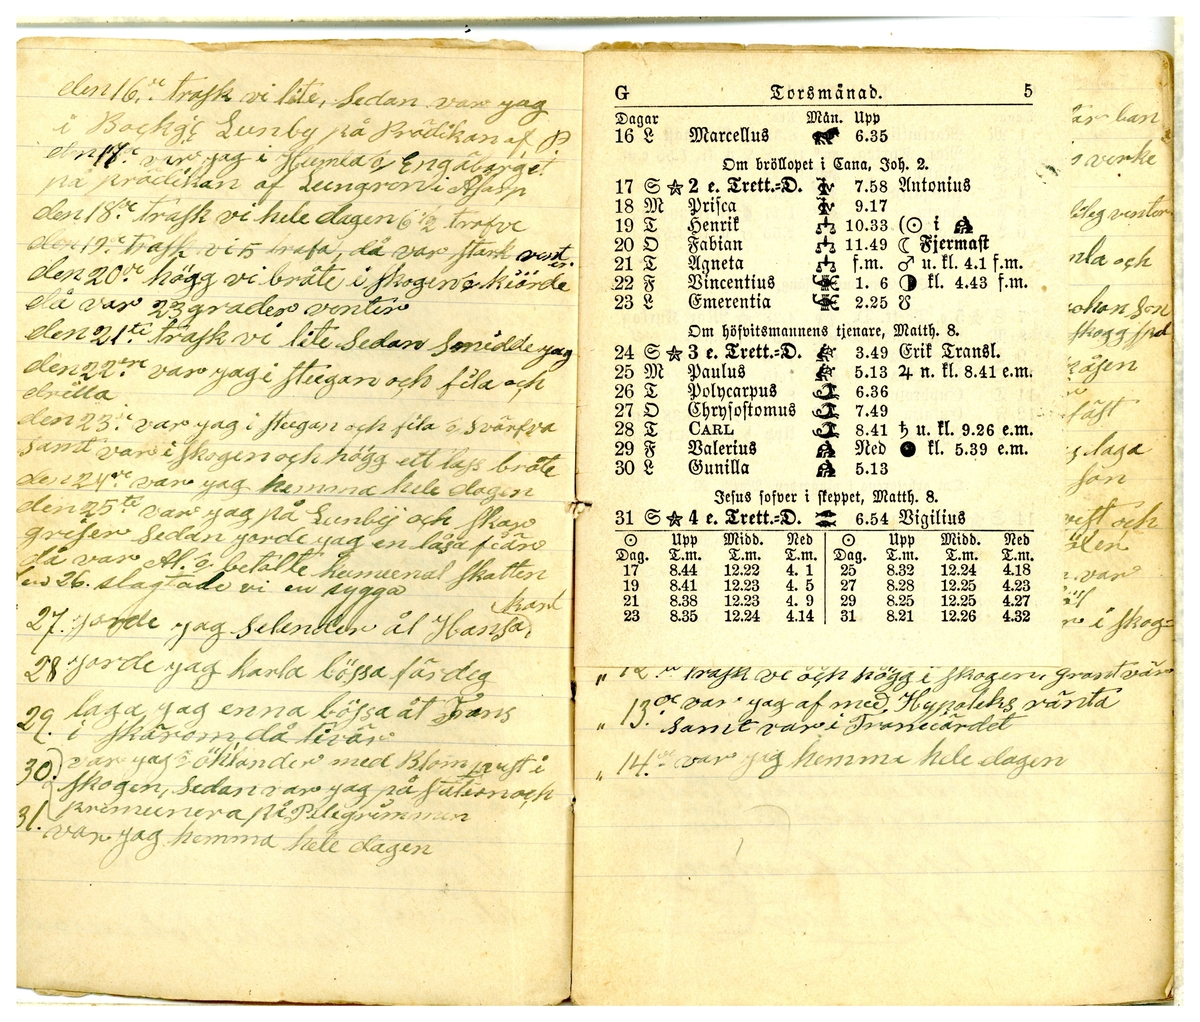 den 16. de trask vi lite, sedan var yag
i Bockg Lunby på Prädikan af P.
den 17. de var yag i Humla o Engåbarget
på prädikan af Lungron i Asasp
den 18. de trask vi hele dagen 6 1/2 trafve
den 19. de trask vi 5 trafa, då var stark vent
er.
den 20 de högg vi bråte i skogen o kiörde
då var 23 grader venter
den 21 ta trask vi lite sedan smidde yag
den 22 ere var yag i stugan och fila och
drilla
den 23. e var yag i stugan och fila o svärfva
samt var i skogen och högg ett lass bråte
den 24 de var yag hemma hele dagen
den 25 ta var yag på Lunby och skar
griser sedan yorde yag en låsa fiär
då var Al. o betalte kumunal skatten
den 26. slagtade vi en sygga
27. yorde yag selender åt Hansa.
28 yorde yag karla bössa färdig
29. laga yag enna bössa åt Frans
i Skärom då
30. var yag o öhlander med Blom qust i
skogen, sedan var yag på Station och
premunera på Pilegrimmen
31. var yag hemma hele dagen
G Torsmånad. 5
Dagar Mån. Upp
16 L Marcellus 6.35
Om bröllopet i Cana, Joh. 2.
17 S ★ 2 e. Trett.=D. 7.58 Antonius
18 M Prisca 9.17
19 T Henrik 10.33 (☉ i
20 O Fabian 11.49 ☾ Fjermast
21 T Agneta f.m. ♂ u. kl. 4.1 f.m.
22 F Vincentius 1. 6 ◑ kl. 4.43 f.m.
23 L Emerentia 2.25 ☋
Om höfvitsmannens tjenare, Matth. 8.
24 S ★ 3 e. Trett.=D. 3.49 Erik Transl.
25 M Paulus 5.13 ♃ n. kl. 8.41 e.m.
26 T Polycarpus 6.36
27 O Chrysostomus 7.49
28 T CARL 8.41 ♄ u. kl. 9.26 e.m.
29 F Valerius Ned ● kl. 5.39 e.m.
30 L Gunilla 5.13
Jesus sofver i skeppet, Matth. 8.
31 S ★ 4 e. Trett.=D. 6.54 Vigilius
☉ Upp Midd. Ned ☉ Upp Midd. Ned
Dag. T.m. T.m. T.m. Dag. T.m. T.m. T.m.
17 8.44 12.22 4. 1 25 8.32 12.24 4.18
19 8.41 12.23 4. 5 27 8.28 12.25 4.23
21 8.38 12.23 4. 9 29 8.25 12.25 4.27
23 8.35 12.24 4.14 31 8.21 12.26 4.32
" 12. trask vi och högg i skogen, grant vär
" 13. de var yag af med Hypoteks ränta
samt var i Tranegärdet
" 14. de var yag hemma hele dagen